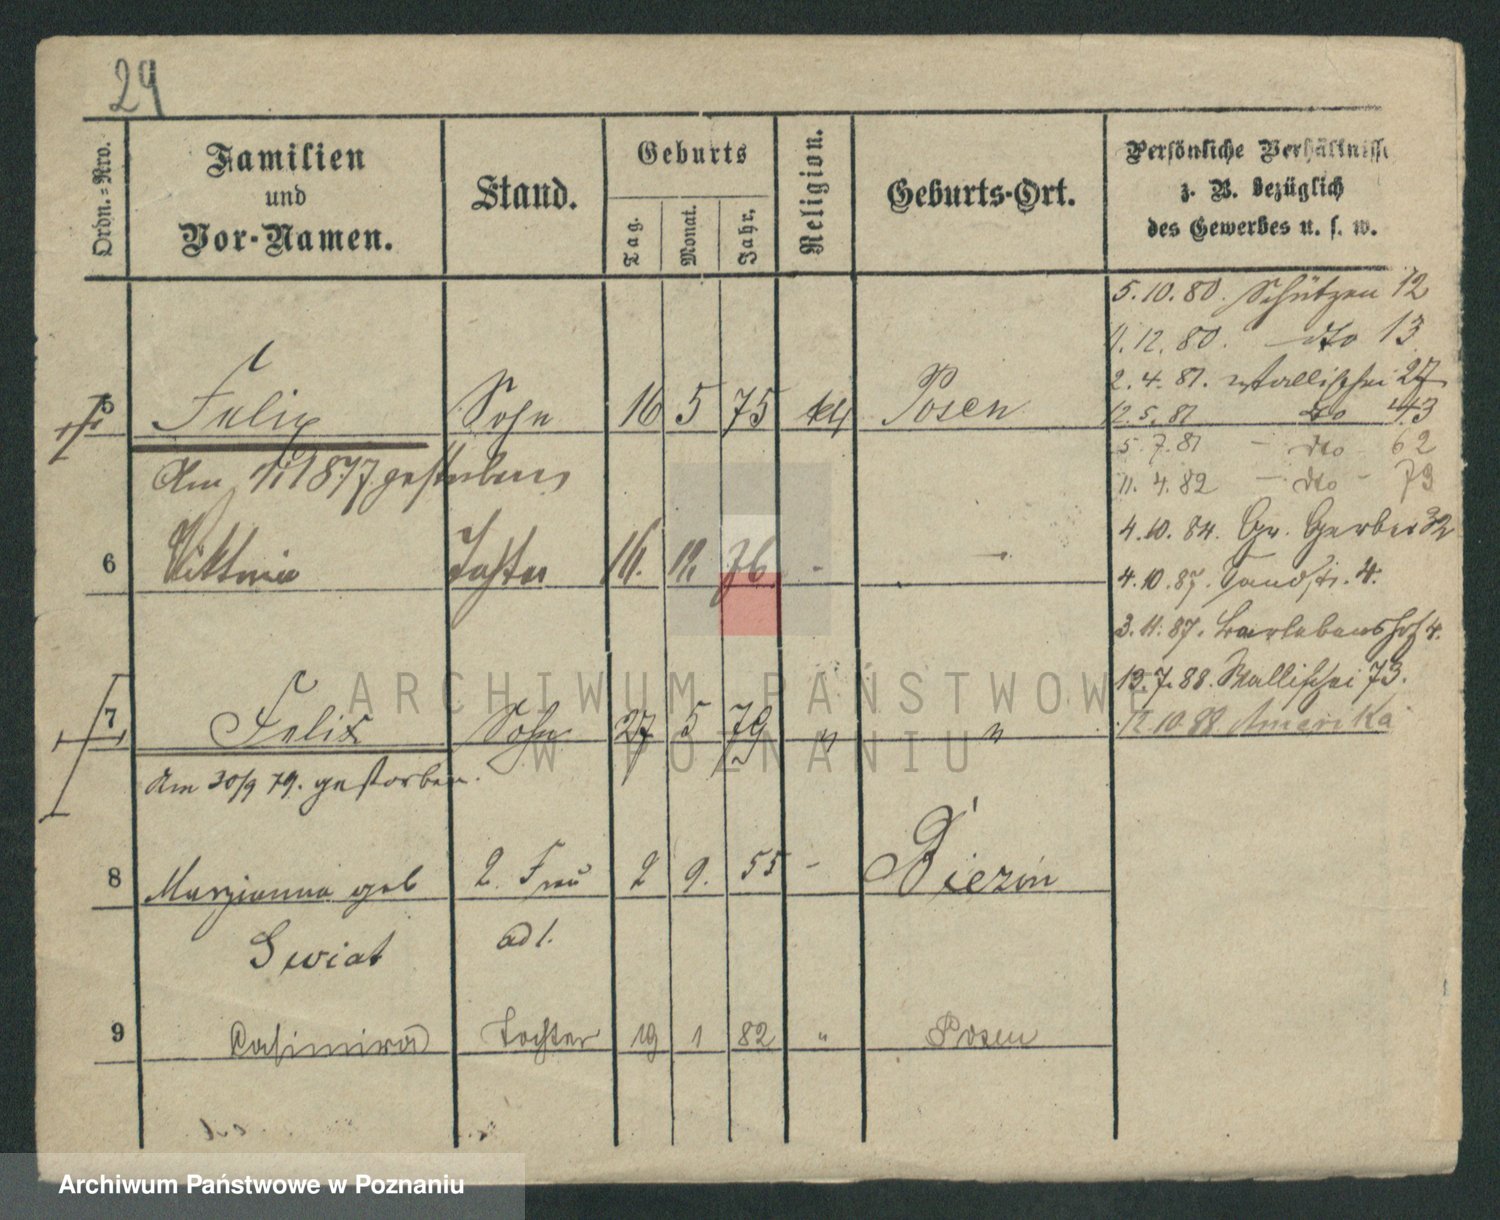 29
Ordn.-Nro.
Familien
und
Vor-Namen.
Stand.
Geburts
Tag.
Monat.
Jahr.
Religion.
Geburts-Ort.
Persönliche Verhältnisse
z. B. bezüglich
des Gewerbes u. s. w.
5.10.80. Schützen 12
1.12.80. dto 13
2.4.81. Wallischei 27
5 Felix Sohn 16 5 75 kth Posen
12.5.81 do 43
Am 1877 gestorben
5.7.81 - dto 62
11.4.82 - dto - 73
4.10.84. Gr. Gerber 32
6 Tochter 76 -
4.10.87. Sandstr. 4.
3.11.87. Barlebenshof 4.
13.7.88. Wallischei 73.
7 Felix Sohn 27 5 79 " "
12.10.88 Amerika
Am 30/9 79. gestorben.
8 Maryianna geb 2. Frau 2 9. 55 -
Swiat adl.
9 Casimira Tochter 19 1 82 " Posen
ARCHIWUM PAŃSTWOWE
W POZNANIU
Archiwum Państwowe w Poznaniu